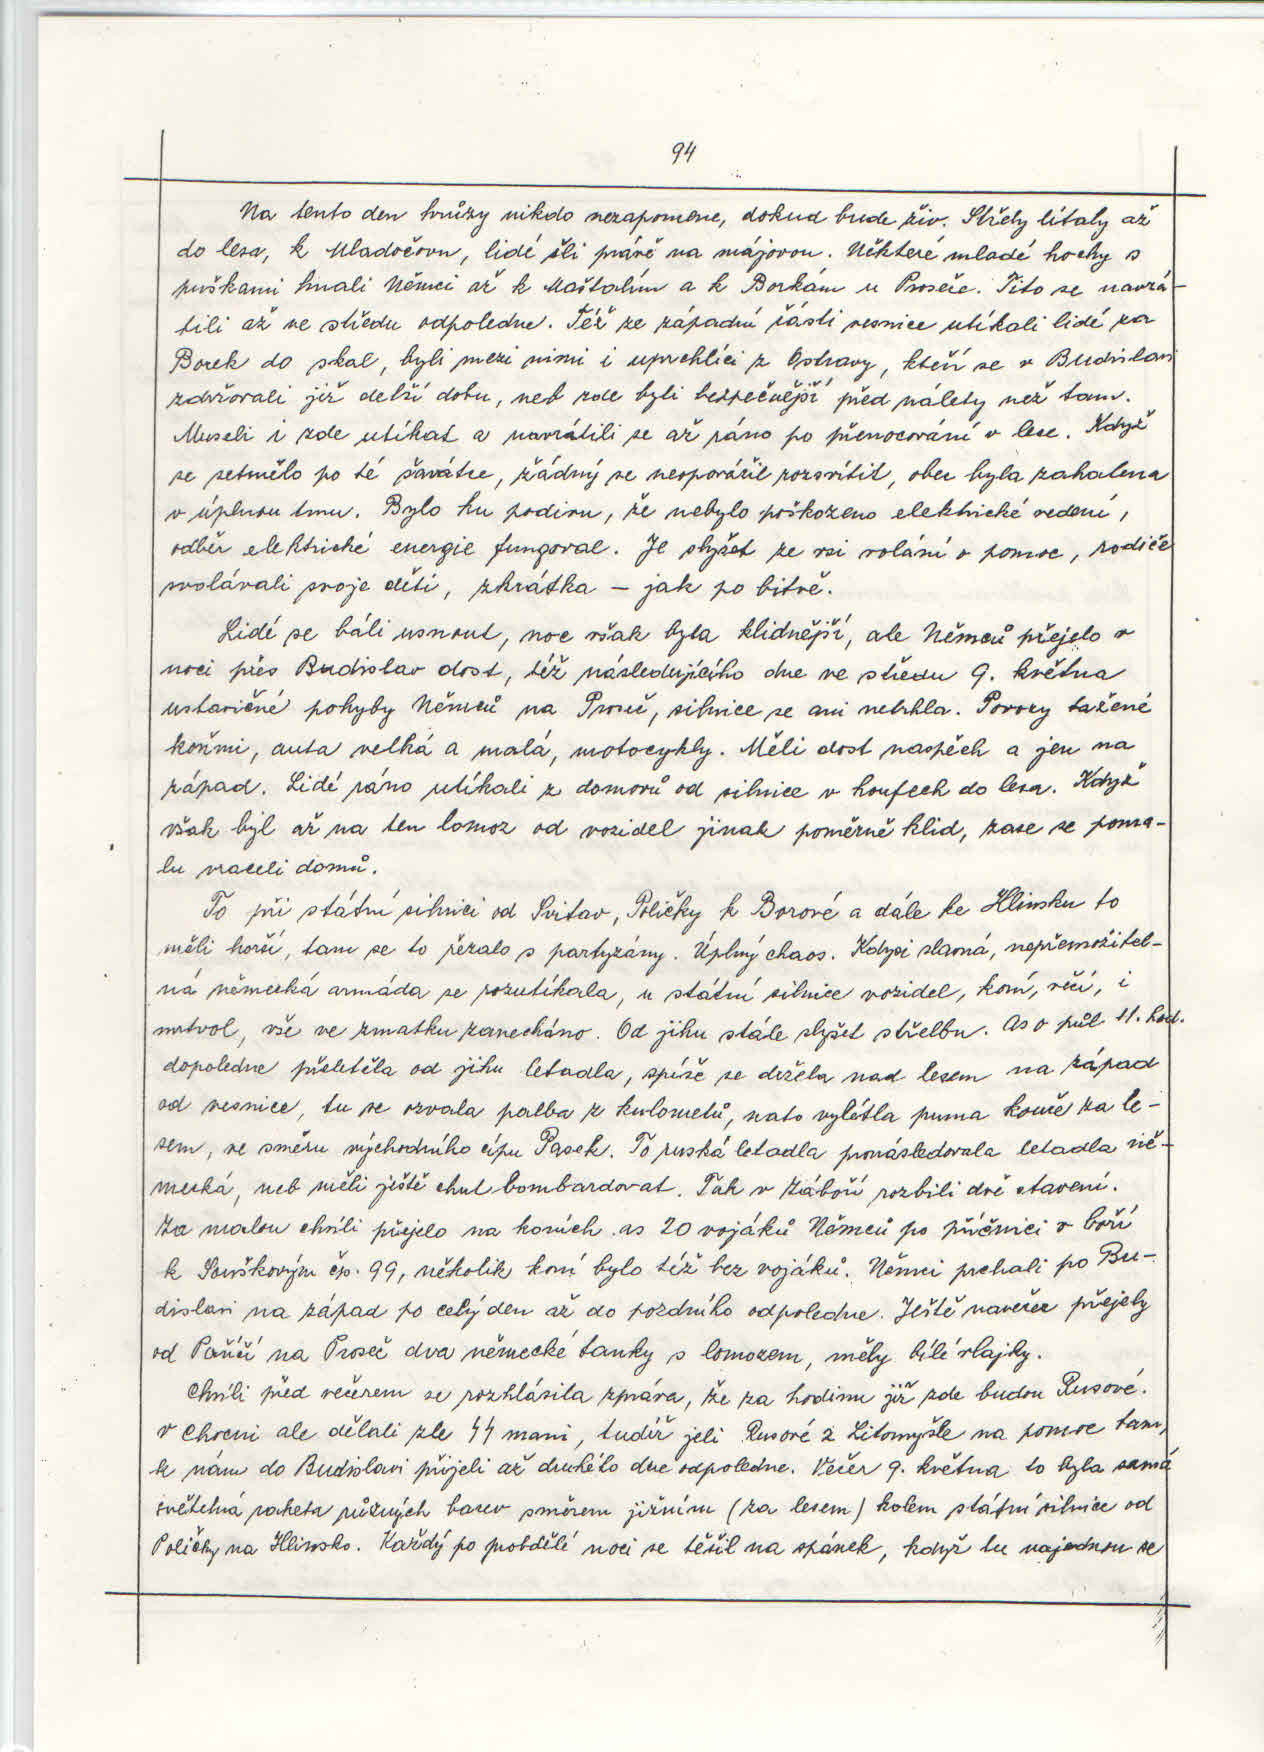 94
Na tento den hrůzy nikdo nezapomene, dokud bude živ. Střely lítaly až
do lesa, k Mladočovu, lidé šli právě na májovou. Některé mladé hochy s
puškami hnali Němci až k Maštalím a k Borkám u Proseče. Tito se navrá-
tili až ve středu odpoledne. Též ze západní části vesnice utíkali lidé za
Borek do skal, byli mezi nimi i uprchlíci z Ostravy, kteří se v Budislavi
zdržovali již delší dobu, neb zde byli bezpečnější před nálety než tam.
Museli i zde utíkat a navrátili se až ráno po přenocování v lese. Když
se setmělo po té šarvátce, žádný se neopovážil rozsvítit, obec byla zahalena
v úplnou tmu. Bylo ku podivu, že nebylo poškozeno elektrické vedení,
odběr elektrické energie fungoval. Je slyšet ze vsi volání o pomoc, rodiče
svolávali svoje děti, zkrátka – jak po bitvě.
Lidé se báli usnout, noc však byla klidnější, ale Němců přejelo v
noci přes Budislav dost, též následujícího dne ve středu 9. května
ustavičné pohyby Němců na Proseč, silnice se ani netrhla. Povozy tažené
koňmi, auta velká a malá, motocykly. Měli dost naspěch a jen na
západ. Lidé ráno utíkali z domovů od silnice v houfech do lesa. Když
však byl až na ten lomoz od vozidel jinak poměrně klid, zase se poma-
lu vraceli domů.
To při státní silnici od Svitav, Poličky k Borové a dále ke Hlinsku to
měli horší, tam se to řezalo s partyzány. Úplný chaos. Kdysi slavná, nepřemožitel-
ná německá armáda se rozutíkala, u státní silnice vozidel, koní, věcí, i
mrtvol, vše ve zmatku zanecháno. Od jihu stále slyšet střelbu. As o půl 11. hod.
dopoledne přeletěla od jihu letadla, spíše se držela nad lesem na západ
od vesnice, tu se ozvala palba z kulometů, nato vylétla puma kouře za le-
sem, ve směru východního cípu Pasek. To ruská letadla pronásledovala letadla ně-
mecká, neb měli ještě chuť bombardovat. Tak v Záboří rozbili dvě stavení.
Za malou chvíli přejelo na koních as 20 vojáků Němců po příčnici v boří
k Souškovým čp. 99, několik koní bylo též bez vojáků. Němci prchali po Bu-
dislavi na západ po celý den až do pozdního odpoledne. Ještě navečer přejely
od Poříčí na Proseč dva německé tanky s lomozem, měly bílé vlajky.
Chvíli před večerem se rozhlásila zpráva, že za hodinu již zde budou Rusové.
V Chocni ale dělali zle SS mani, tudíž jeli Rusové z Litomyšle na pomoc tam,
k nám do Budislavi přijeli až druhého dne odpoledne. Večer 9. května to byla samá
světelná raketa různých barev směrem jižním (za lesem) kolem státní silnice od
Poličky na Hlinsko. Každý po probdělé noci se těšil na spánek, když tu najednou se